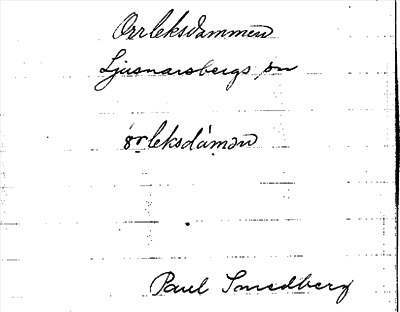 Orrleksdammen
Ljusnarsbergs sn
orleksdámən
Paul Smedberg